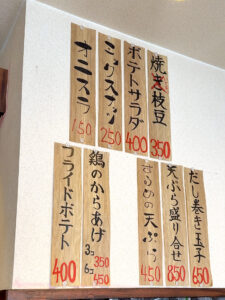 焼き枝豆
350
ポテトサラダ
400
ミックスナッツ
250
オニスラ
150
だし巻き玉子
650
天ぷら盛り合せ
850
の天ぷら
450
鶏のからあげ
3コ 350
6コ 450
フライドポテト
400